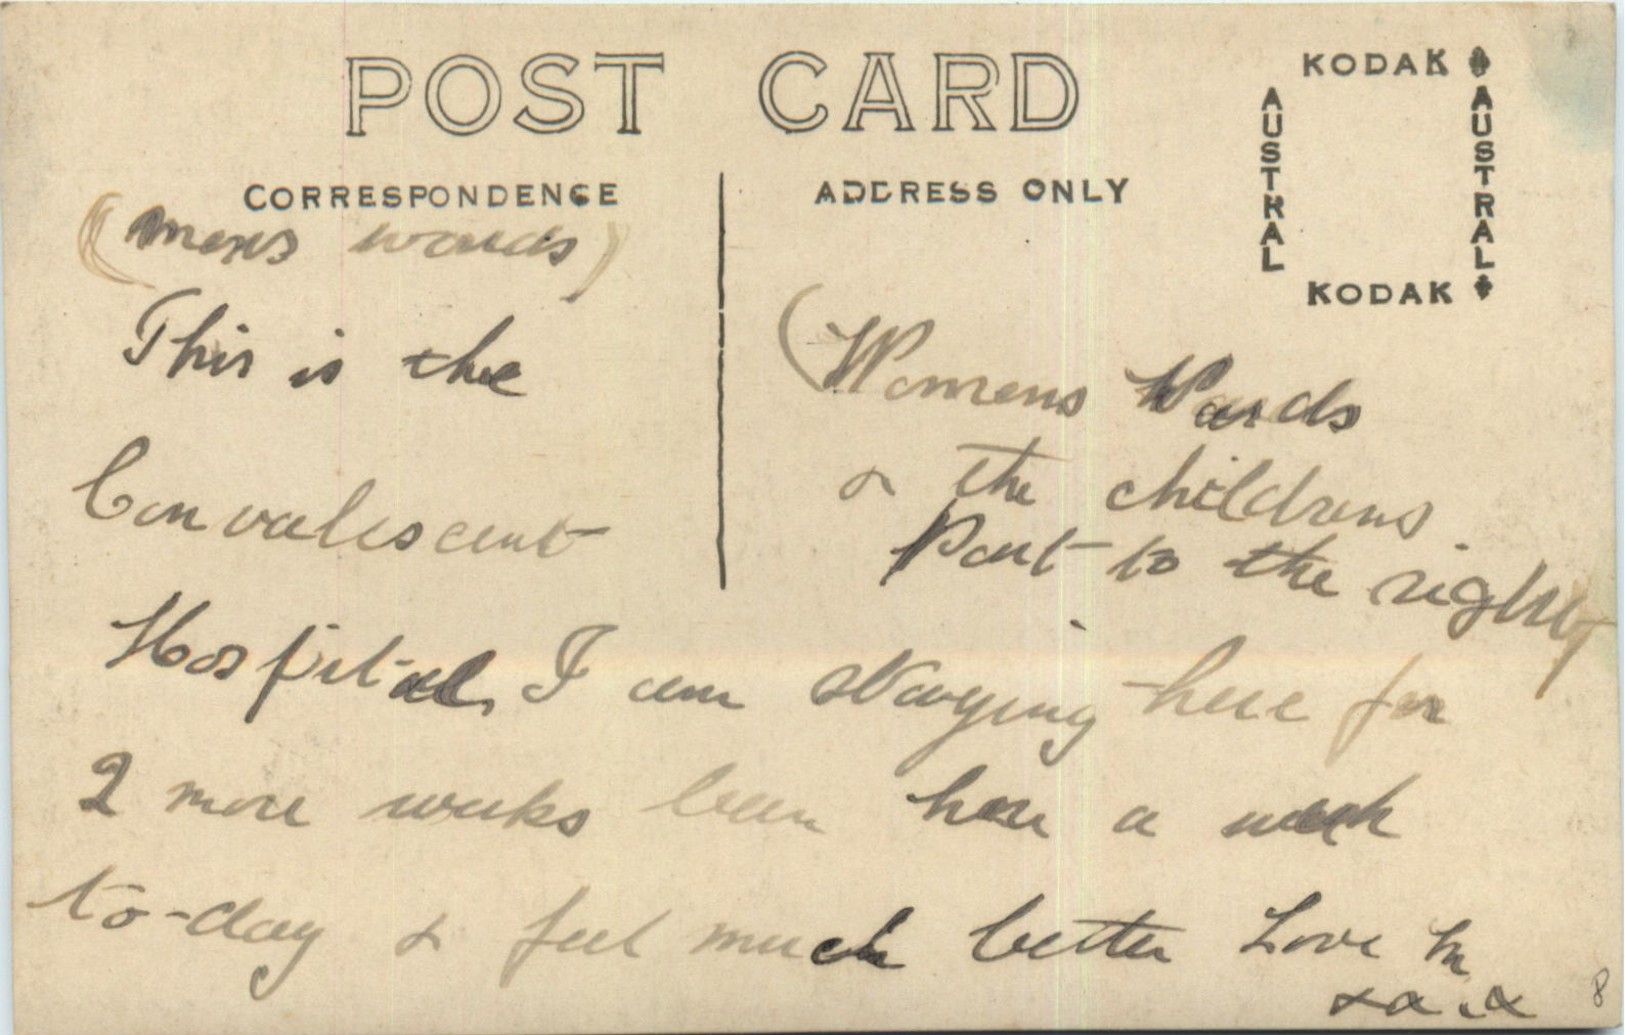 POST CARD
KODAK
AUSTRAL
AUSTRAL
KODAK
CORRESPONDENCE
ADDRESS ONLY
(mens wards)
This is the
Convalescent
Hospital, I am staying here for
2 more weeks been here a week
to-day & feel much better Love M
(Womens Wards
& the childrens
Part to the right)
8